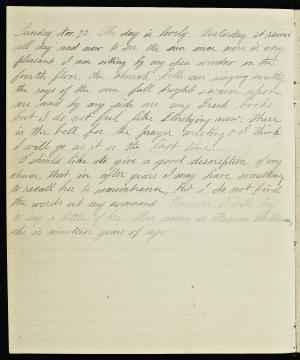 Sunday Nov. 23. The day is lovely. Yesterday it rained
all day and now to see the sun once more is very
pleasant I am sitting by my open window on the
fourth floor, the church bells are ringing sweetly
the rays of the sun fall bright & warm upon
me and by my side are my Greek books
but I do not feel like studying now. There
is the bell for the prayer meeting & I think
I will go as it is the last time.
I should like to give a good description of my
chum, that in after years I may have something
to recall her to remembrance, but I do not find
the words at my command. However I will try
to say a little of her. Her name is Fannie
she is nineteen years of age